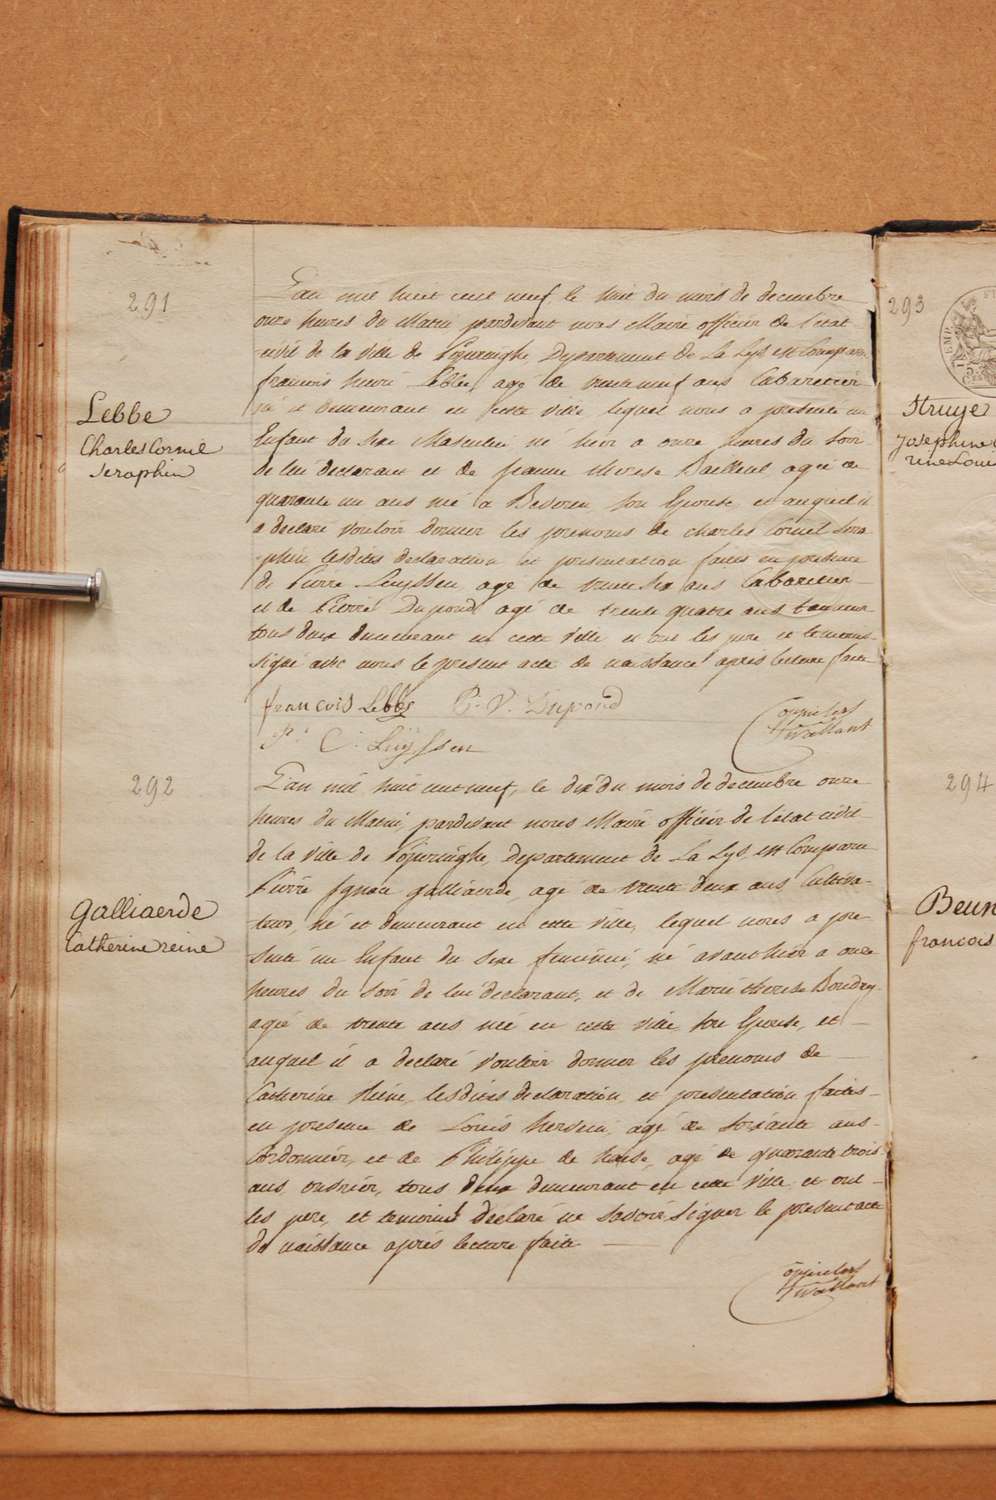 291
Lebbe
Charles Cornil
Seraphin
L'an mil huit cent neuf, le huit du mois de decembre
onze heures du Matin pardevant nous Maire officier de l'état
civil de la ville de Poperinghe, Departement de La Lys est Comparu
francois henri Lebbe, agé de trente neuf ans Cabaretier
né et demeurant en cette ville lequel nous a presenté un
Enfant du sexe Masculin né hier a onze heures du soir
de lui declarant et de jeanne therese Bailleul agée de
quarante un ans née a Beveren son Epouse, et auquel il
a declaré vouloir donner les prenoms de charles Cornil Sera
phin lesdites declaration et presentation faites en presence
de Pierre Luyssen agé de trente six ans Cabaretier
et de Pierre Dupond agé de trente quatre ans tanneur
tous deux demeurant en cette ville et ont les pere et temoins
signé avec nous le present acte de naissance après lecture faite
francois Lebbe P. V. Dupond
P. C. Luyssen
292
Galliaerde
Catherine reine
L'an mil huit cent neuf, le dix du mois de decembre onze
heures du Matin, pardevant nous Maire officier de l'etat civil
de la ville de Poperinghe, departement de La Lys, est Comparu
Pierre Ignace galliaerde, agé de trente deux ans Cultiva-
teur, né et demeurant en cette ville, lequel nous a pre
senté un Enfant du sexe feminin, né avant hier a onze
heures du soir de lui declarant, et de Marie therese Boudry
agée de trente ans née en cette ville son Epouse, et
auquel il a declaré vouloir donner les prenoms de
Catherine Reine, lesdites declaration, et presentation faites
en presence de Louis hersein, agé de soixante ans
Cordonnier, et de Philippe de haese, agé de quarante trois
ans ouvrier, tous deux demeurant en cette ville et ont
les pere, et temoins declaré ne savoir signer le present acte
de naissance après lecture faite
293
Struye
Josephine
294
Beun
francois